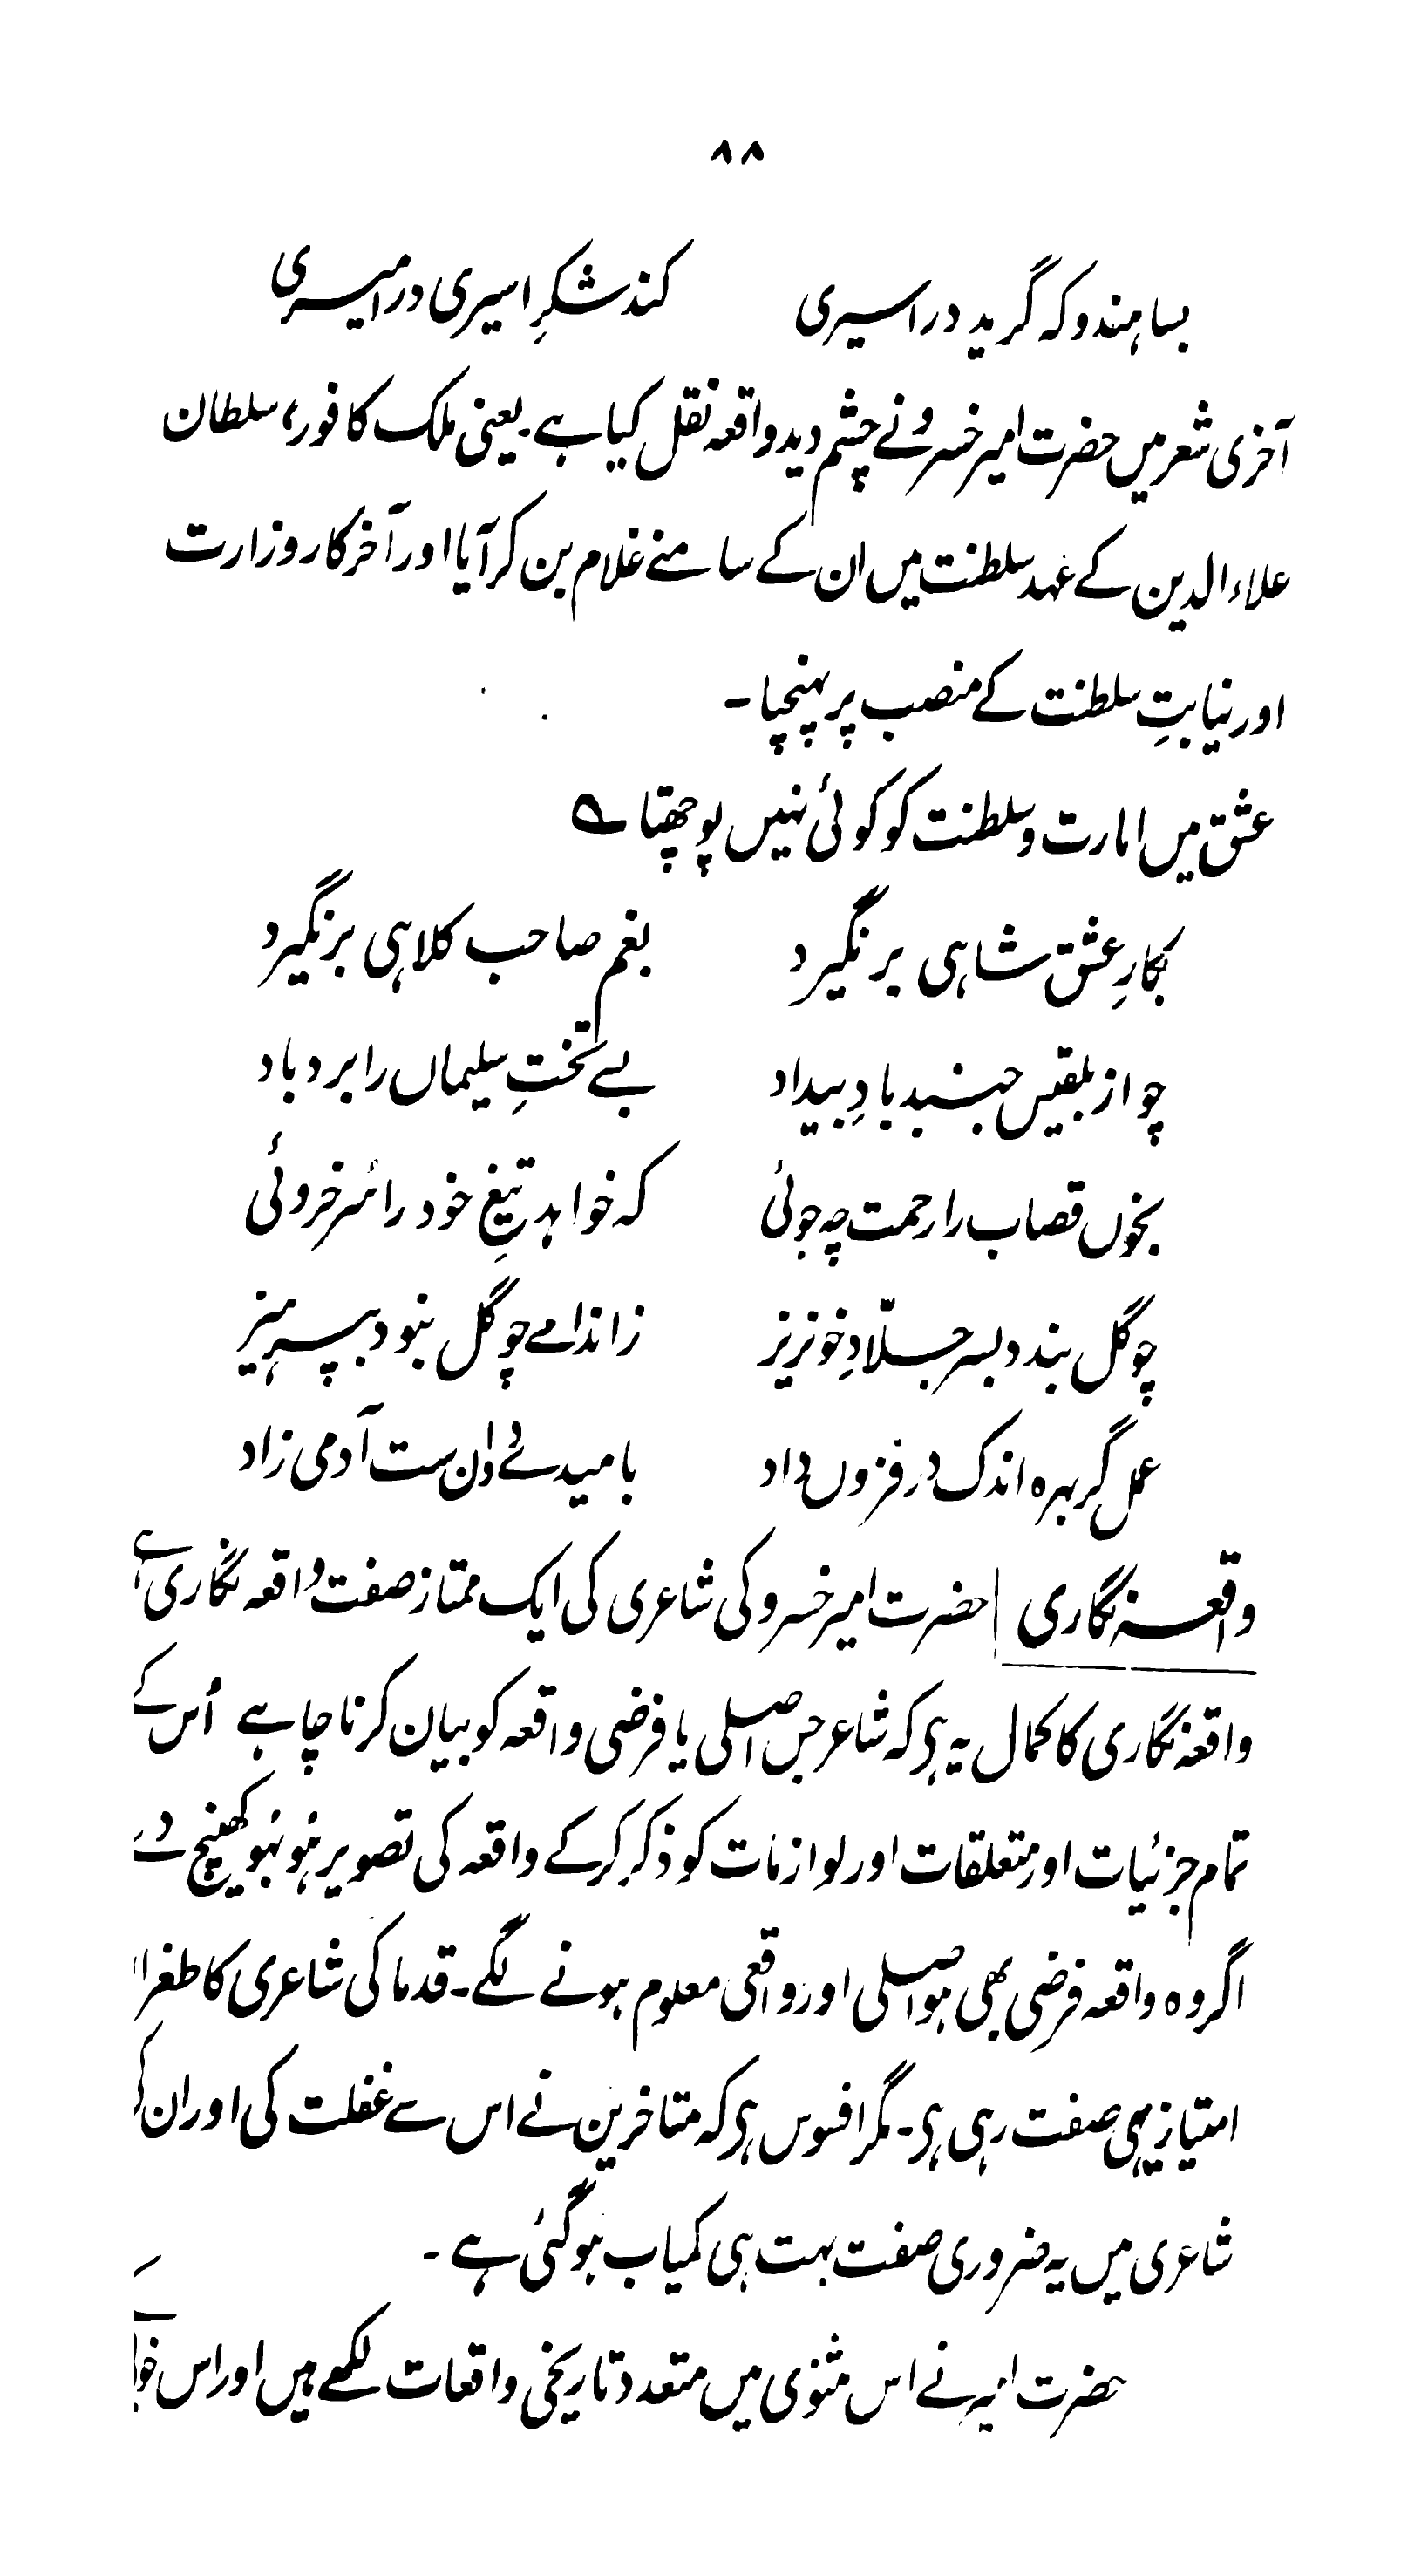 ۸۸
بسا ہندو کہ گرید در اسیری کند شکرِ اسیری در امیری
آخری شعر میں حضرت امیر خسرو نے چشم دید واقعہ نقل کیا ہے۔ یعنی ملک کافور، سلطان
علاء الدین کے عہد سلطنت میں ان کے سامنے غلام بن کر آیا اور آخر کار وزارت
اور نیابتِ سلطنت کے منصب پر پہنچا۔
عشق میں امارت و سلطنت کو کوئی نہیں پوچھتا ے
بکارِ عشق شاہی برنگیرد بغم صاحب کلاہی برنگیرد
چو از بلقیس جنبد بادِ بیداد بسے تختِ سلیماں را برد باد
بخوں قصاب را رحمت چہ جوئی کہ خواہد تیغِ خود را سرخروئی
چو گل بندد بسر جلّادِ خونریز ز اندامے چو گل نبود بپرہیز
عمل گر بہرہ اندک در فزوں داد بامید دواں ست آدمی زاد
واقعہ نگاری | حضرت امیر خسرو کی شاعری کی ایک ممتاز صفت واقعہ نگاری ہے
واقعہ نگاری کا کمال یہ ہی کہ شاعر جس اصلی یا فرضی واقعہ کو بیان کرنا چاہے اُس کے
تمام جزئیات اور متعلقات اور لوازمات کو ذکر کرکے واقعہ کی تصویر ہو بہو کھینچ دے
اگر وہ واقعہ فرضی بھی ہو اصلی اور واقعی معلوم ہونے لگے۔ قدما کی شاعری کا طغرا
امتیاز یہی صفت رہی ہی۔ مگر افسوس ہی کہ متاخرین نے اس سے غفلت کی اور ان کی
شاعری میں یہ ضروری صفت بہت ہی کمیاب ہوگئی ہے۔
حضرت امیر نے اس مثنوی میں متعدد تاریخی واقعات لکھے ہیں اور اس